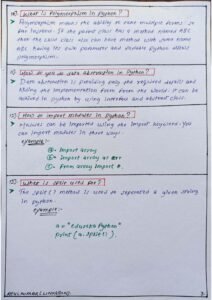 10) What is Polymorphism in Python?
→ Polymorphism means the ability to take multiple forms. So
for instance, if the parent class has a method named ABC
then the child class also can have method with same name
ABC having its own parameter and variable. Python allows
polymorphism.
11) How do you do data abstraction in Python?
→ Data abstraction is providing only the required details and
hiding the implementation from the world. It can be
achieved in python by using interface and abstract class.
12) How to import modules in Python?
→ Modules can be imported using the import keyword. You
can import modules in three ways:
Example:-
①- Import array
②- Import array as arr
③- From array import *
13) What is split used for?
→ The split() method is used to separate a given string
in python.
Example:-
a = "Edureka Python"
print (a.split())